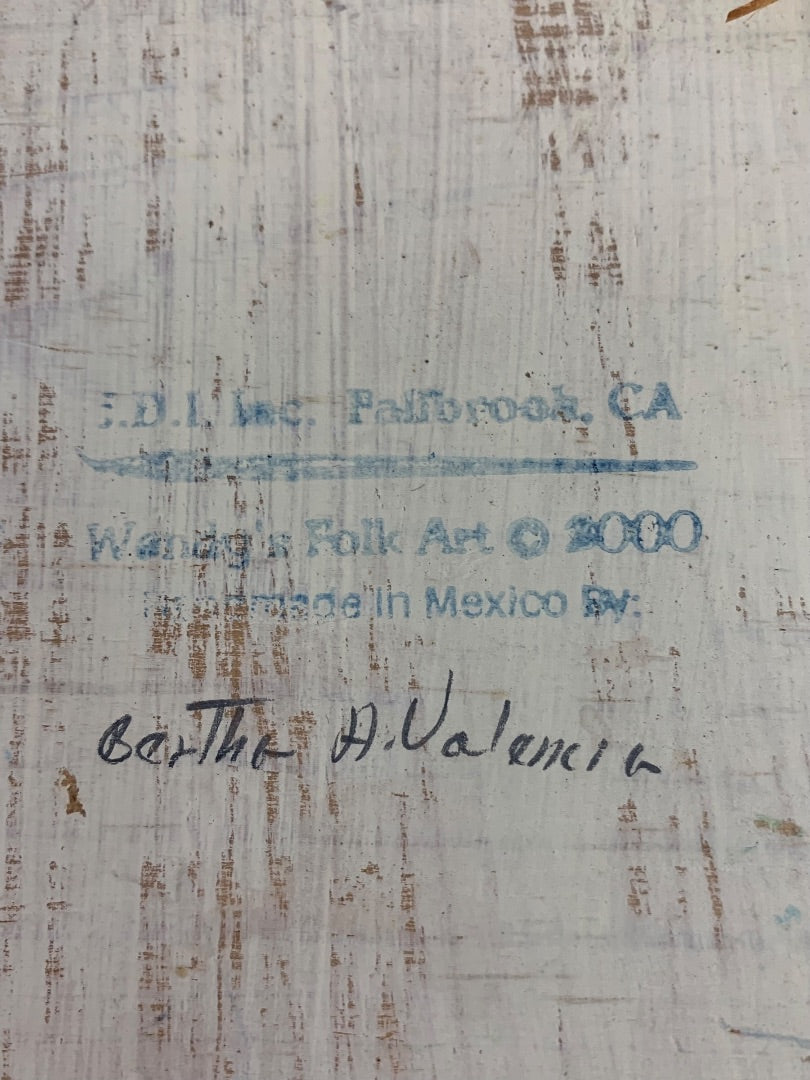 .D.I. Inc. Fallbrook, CA
Folk Art © 2000
Handmade In Mexico By:
Bertha A. Valencia